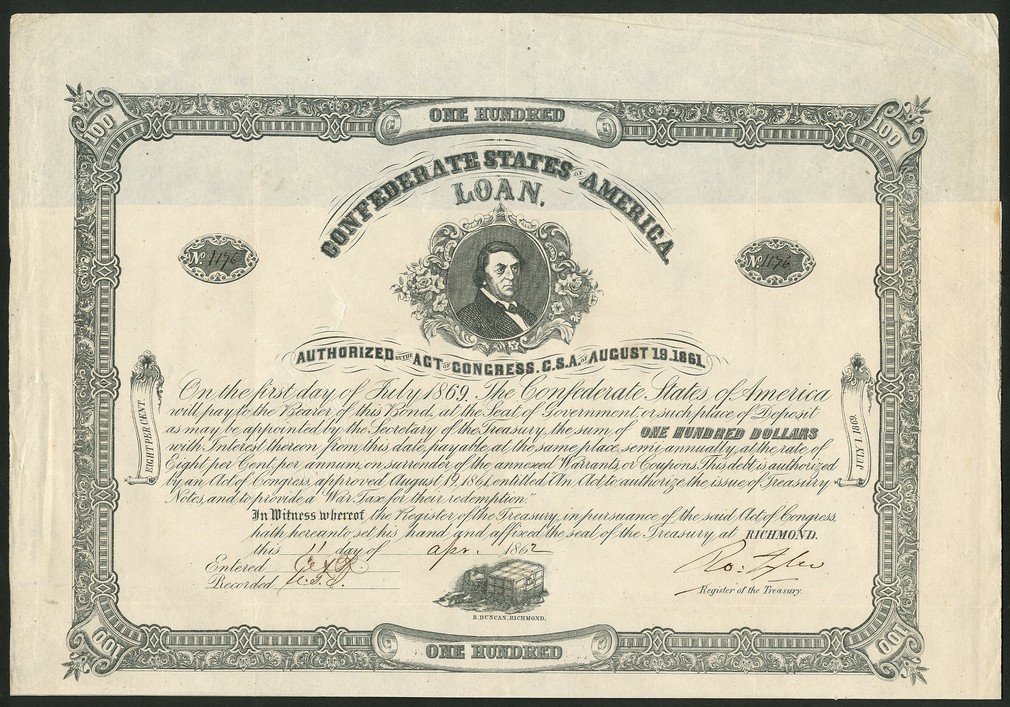 ONE HUNDRED
100
100
CONFEDERATE STATES OF AMERICA
LOAN.
No. 1196
No. 1196
AUTHORIZED BY THE ACT OF CONGRESS. C.S.A. OF AUGUST 19. 1861.
EIGHT PER CENT.
JULY 1. 1869.
On the first day of July 1869, The Confederate States of America
will pay to the Bearer of this Bond, at the Seat of Government, or such place of Deposit
as may be appointed by the Secretary of the Treasury, the sum of ONE HUNDRED DOLLARS
with Interest thereon from this date, payable at the same place, semi-annually, at the rate of
Eight per Cent, per annum, on surrender of the annexed Warrants, or Coupons. This debt is authorized
by an Act of Congress, approved August 19, 1861, entitled "An Act to authorize the issue of Treasury
Notes, and to provide a War Tax for their redemption."
In Witness whereof, the Register of the Treasury, in pursuance of the said Act of Congress,
hath hereunto set his hand and affixed the seal of the Treasury, at RICHMOND.
this 11 day of apr. 1862
Entered
Recorded
Ro: Tyler
Register of the Treasury.
B. DUNCAN, RICHMOND.
100
100
ONE HUNDRED